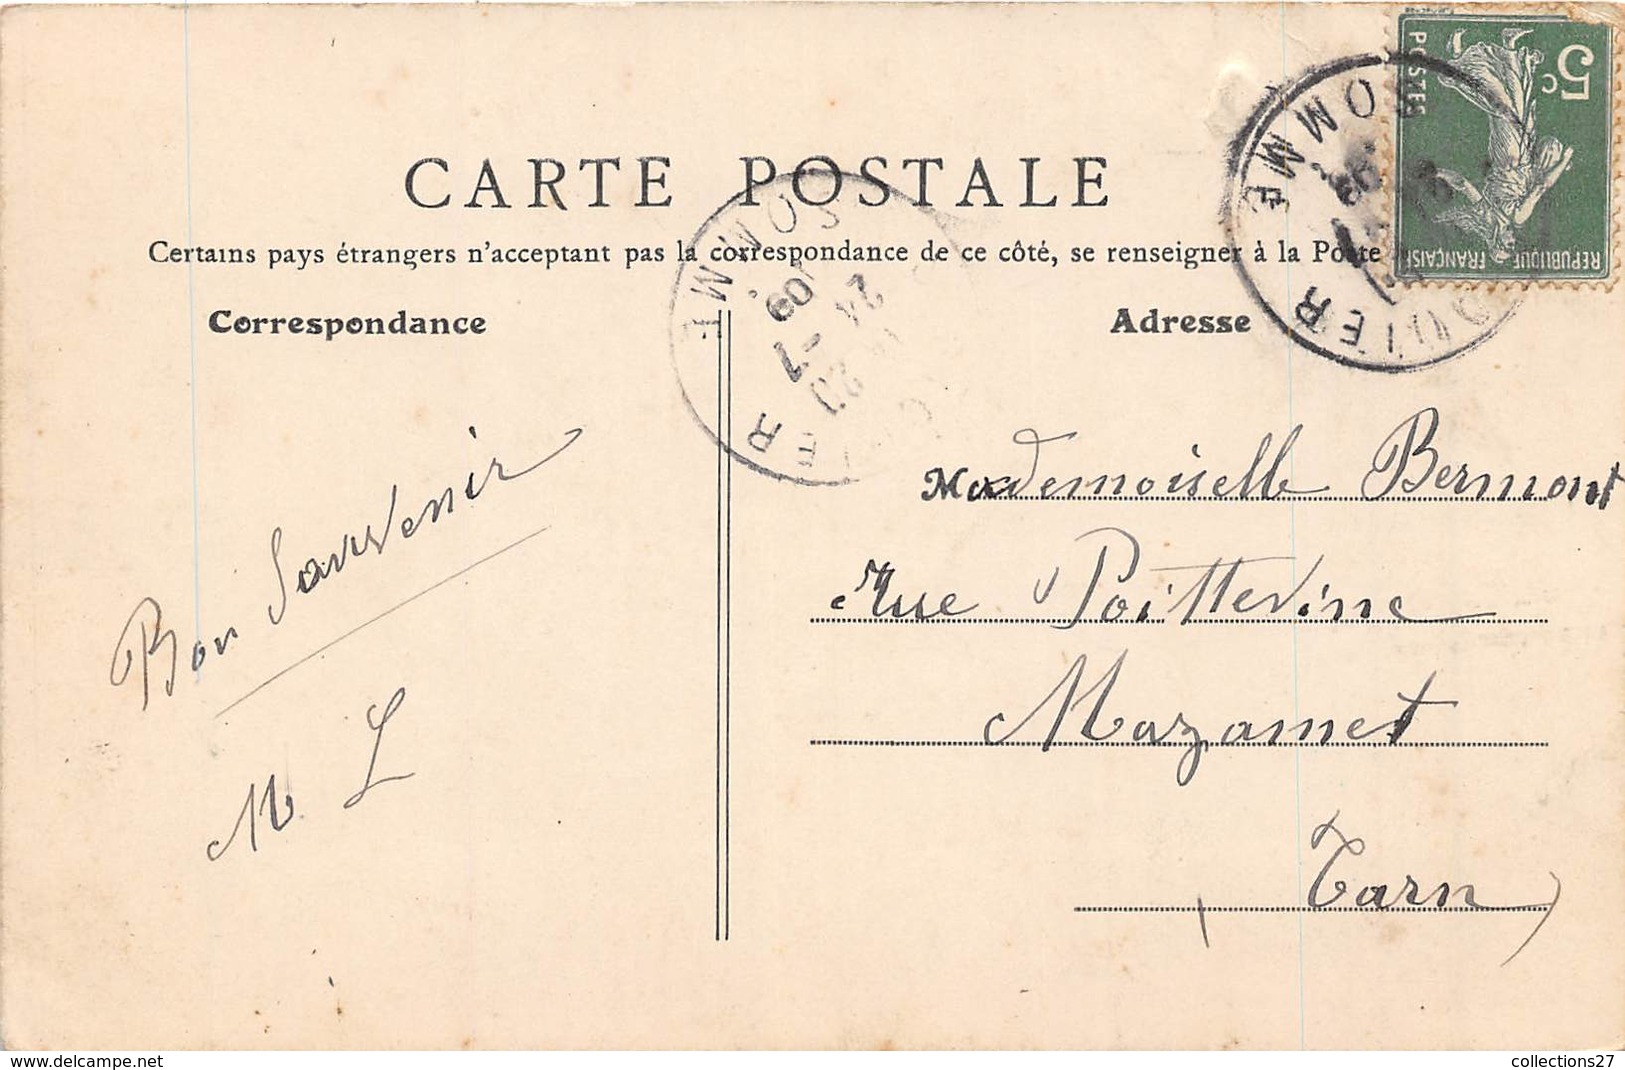 5c
POSTES
REPUBLIQUE FRANÇAISE
SOMME
CARTE POSTALE
SOMME
Certains pays étrangers n'acceptant pas la correspondance de ce côté, se renseigner à la Poste
24 -7
09
Correspondance
Adresse
Mademoiselle Bermont
Rue Poittevine
Mazamet
(Tarn)
Bon Souvenir
M L
www.delcampe.net
collections27